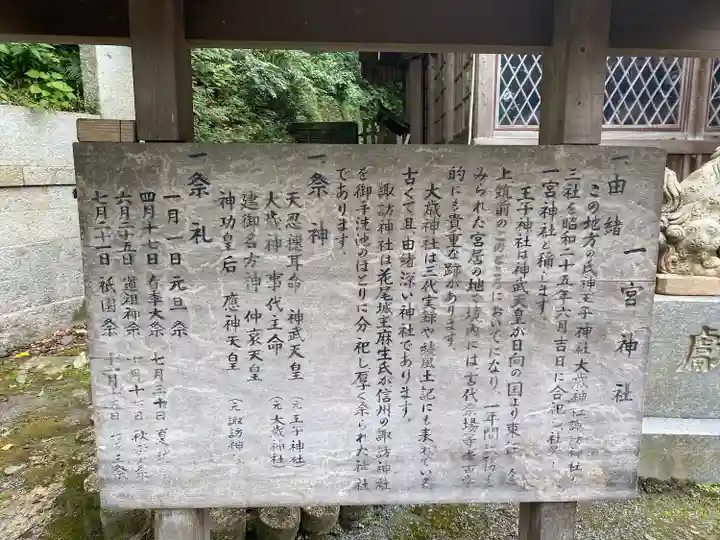 一、由緒 一宮神社
この地方の氏神王子神社大歳神社諏訪神社の
三社を昭和二十五年六月吉日に合祀
一宮神社と称します。
王子神社は神武天皇が日向の国より東
上筑前の おいでになり、一年間
みられた宮居の地で境内には古代祭場等考古学
的にも貴重な跡があります。
大歳神社は三代実録や 風土記にも表れている
古くて且由緒深い神社であります。
諏訪神社は花尾城主麻生氏が信州の諏訪神社
を御手洗池のほとりに分祀し厚く祭られた神社
であります。
一、祭神
天忍穂耳命 神武天皇 (元王子神社
大歳神 事代主命 (元大歳神社
建御名方神 仲哀天皇
神功皇后 應神天皇 (元諏訪神
一、祭礼
一月一日 元旦祭 七月三十日
四月十七日 春季大祭 十月十七 秋
六月二十五日 道祖神祭
七月二十一日 祇園祭